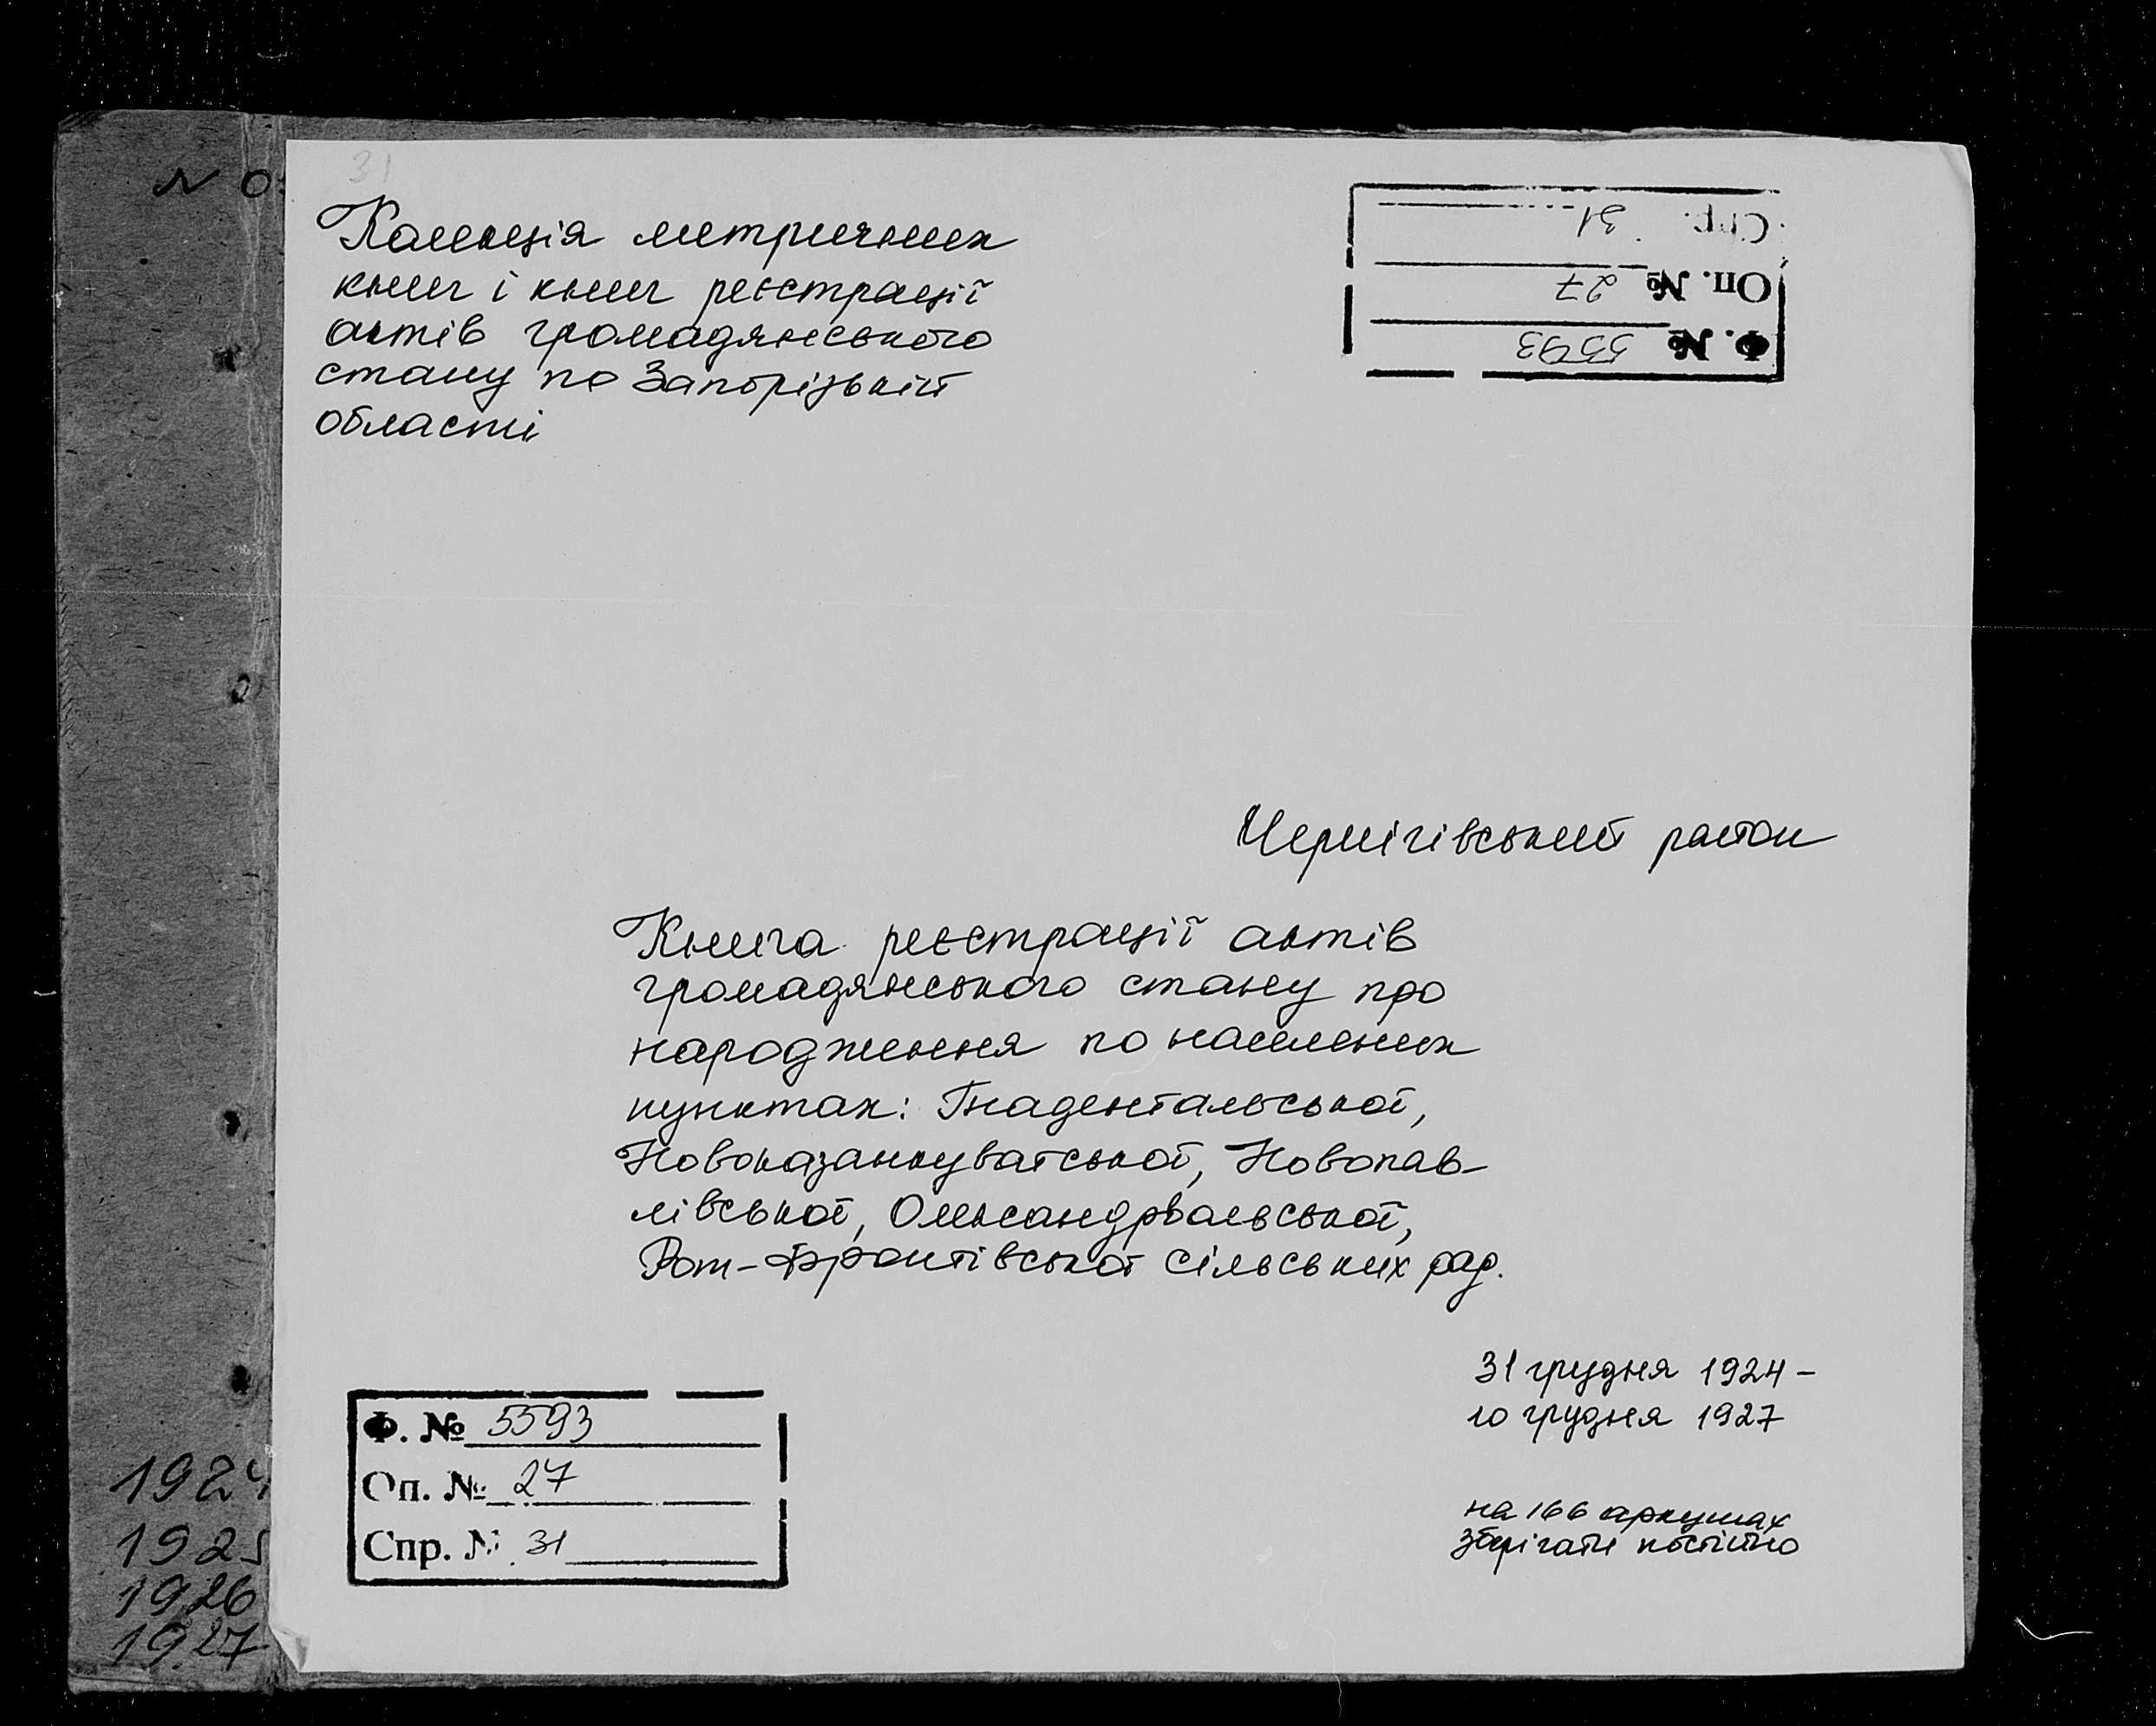 31
N 0
Колекція метричних
книг і книг реєстрації
актів громадянського
стану по Запорізькій
області
Спр. 31
Оп. № 27
Ф. № 5593
Чернігівський район
Книга реєстрації актів
громадянського стану про
народження по населених
пунктах: Гнадентальської,
Новоказанкуватської, Новопав-
лівської, Олександрвальської,
Рот-Фронтівської сільських рад.
31 грудня 1924 -
10 грудня 1927
на 166 аркушах
зберігати постійно
Ф. № 5593
Оп. № 27
Спр. № 31
1924
1925
1926
1927